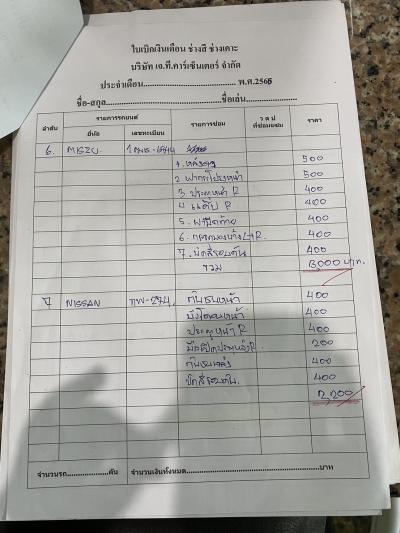 ใบเบิกเงินเดือน ช่างสี ช่างเคาะ
บริษัท เจ.ที.คาร์เซ็นเตอร์ จำกัด
ประจำเดือน............................ พ.ศ.2565
ชื่อ-สกุล.................................ชื่อเล่น..................
ลำดับ รายการรถยนต์ รายการซ่อม ว ด ป ราคา
ยี่ห้อ เลขทะเบียน ที่ซ่อมจบ
6.
1. 500
2. ฝากระโปรงหน้า 500
3. ประตูหน้า R 400
4. แก้ม R 400
5. 400
6. 400
7. ขัดสีรอบคัน 400
รวม 3,000 บาท.
7 NISSAN กันชนหน้า 400
บังโคลนหน้า 400
ประตูหน้า R 400
200
กันชนหลัง 400
ขัดสีรอบคัน. 400
2,200
จำนวนรถ..................คัน จำนวนเงินทั้งหมด..................................................บาท